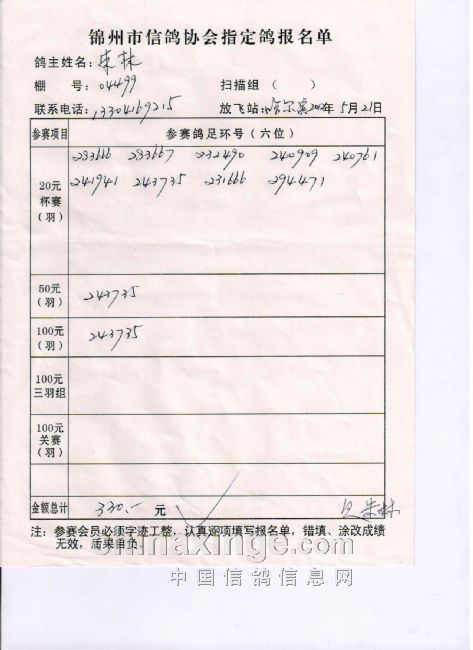 锦州市信鸽协会指定鸽报名单
鸽主姓名：朱林
棚 号：04499 扫描组（ ）
联系电话：13304169215 放飞站：哈尔滨 年5月21日
参赛项目 参赛鸽足环号（六位）
20元杯赛（羽） 283666 283667 232490 240909 240761
241941 243735 231666 294471
50元（羽） 243735
100元（羽） 243735
100元三羽组
100元关赛（羽）
金额总计 330.- 元 朱林
注：参赛会员必须字迹工整，认真逐项填写报名单，错填、涂改成绩
无效，后果自负。
chinaxinge.com
中国信鸽信息网